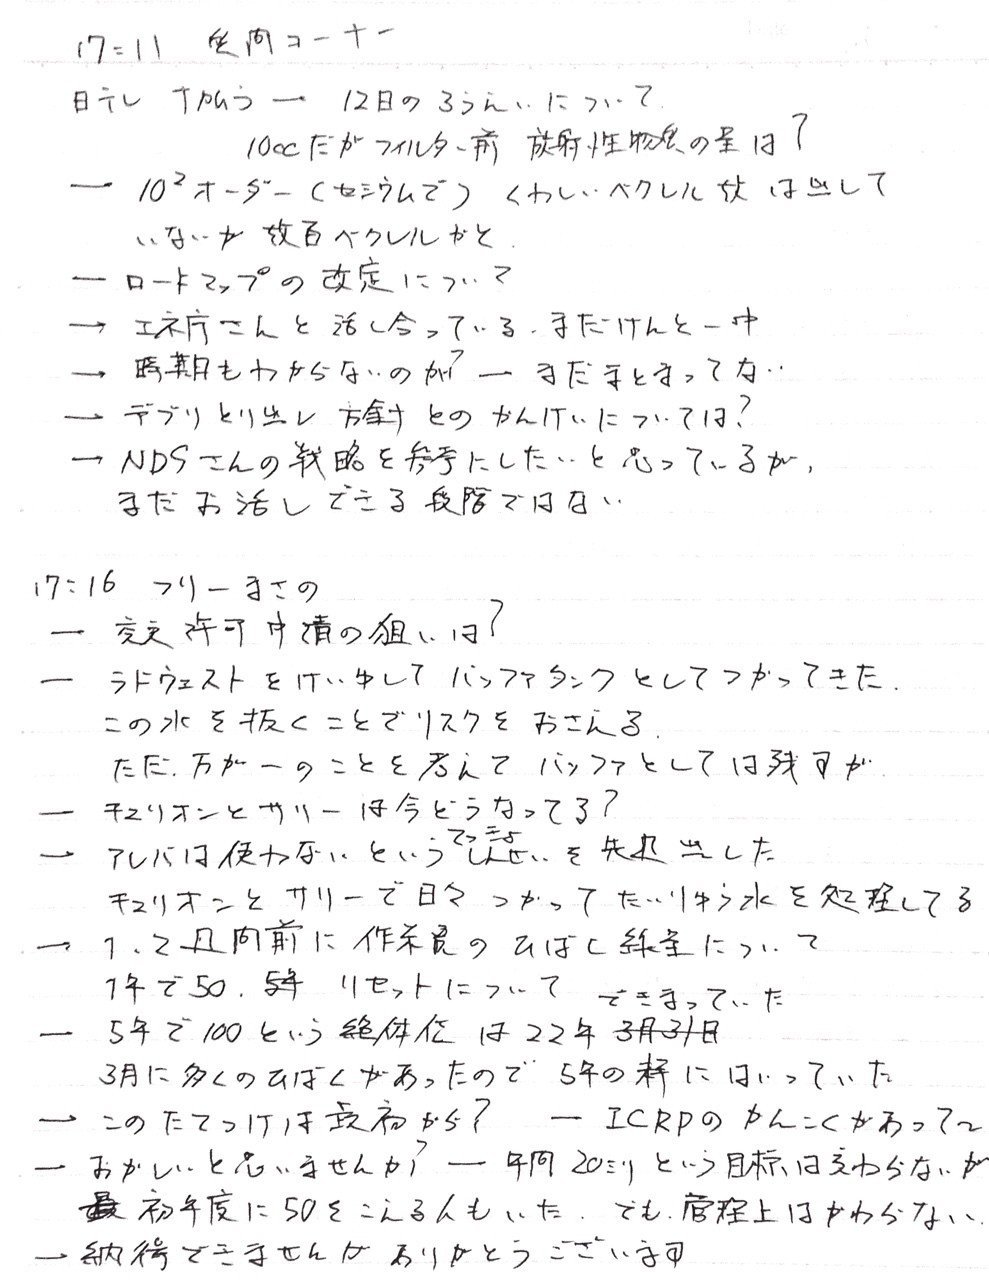 17:11 質問コーナー
日テレ すかんう ー 12日のろうえいについて
10ccだが フィルター前 放射性物質の量は?
ー 10²オーダー(セシウムで) くわしいベクレル数は出して
いないが 数百ベクレルかと.
ー ロードマップの改定について
→ エネ庁さんと話し合っている. まだけんとー中
→ 時期もわからないのか? ー まだまとまってない
→ デブリとり出し方針とのかんけいについては?
→ NDSさんの戦略を参考にしたいと思っているが,
まだお話しできる段階ではない
17:16 フリーまさの
ー 変更許可申請の狙いは?
ー ラドウェストをけい由してバッファタンクとしてつかってきた.
この水を抜くことでリスクをおさえる.
ただ、万が一のことを考えてバッファとしては残すが
ー チュリオンとサリーは今どうなってる?
→ アレバは使わないというてっきょしんせいを先程出した
チュリオンとサリーで日々つかってたいりゅう水を処理してる
→ 1、2週間前に作業員のひばく線量について
1年で50. 5年 リセットについて
できまっていた
ー 5年で100という絶体値は22年3月31日
3月に多くのひばくがあったので5年の枠にはいっていた
→ このたてつけは最初から? ー ICRPのかんこくがあって〜
ー おかしいと思いませんか? ー 年間20ミリという目標は変わらないが
最初年度に50をこえる人もいた. でも、管理上はかわらない.
→ 納得できませんが ありがとうございます